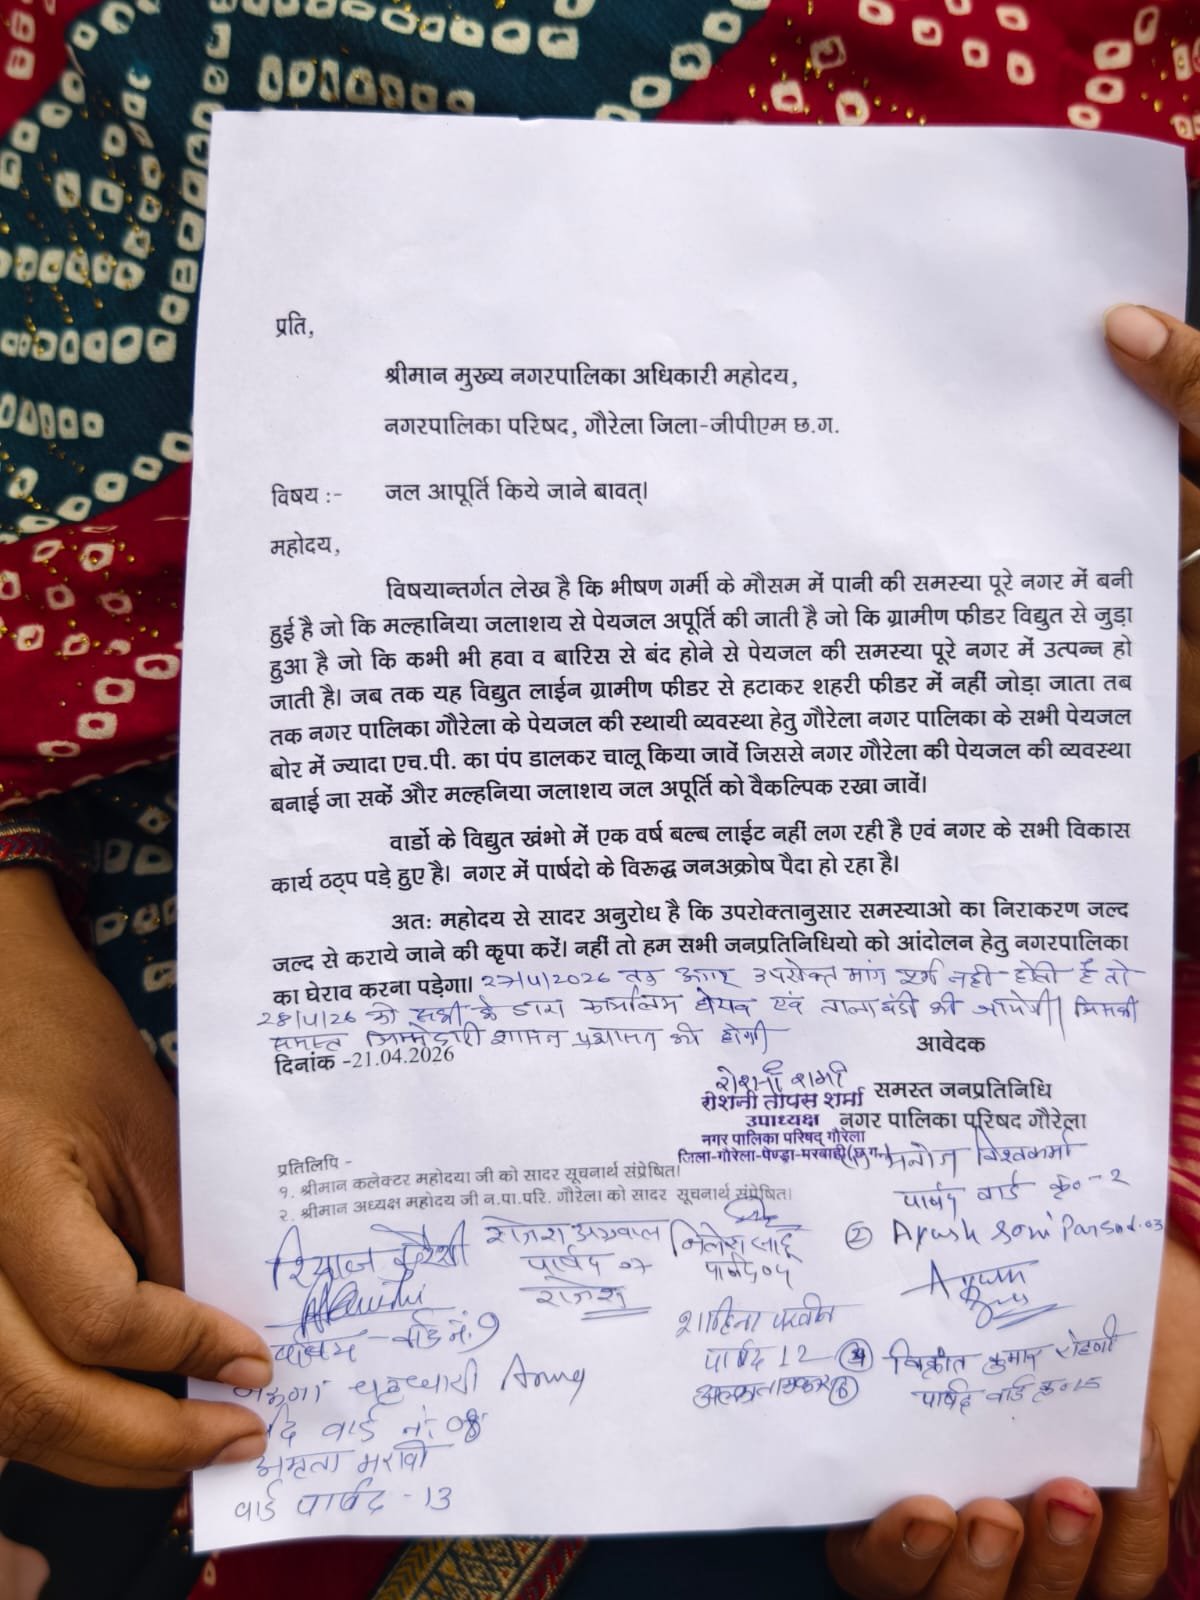 प्रति,
श्रीमान मुख्य नगरपालिका अधिकारी महोदय,
नगरपालिका परिषद, गौरेला जिला-जीपीएम छ.ग.
विषय :- जल आपूर्ति किये जाने बावत्।
महोदय,
विषयान्तर्गत लेख है कि भीषण गर्मी के मौसम में पानी की समस्या पूरे नगर में बनी
हुई है जो कि मल्हानिया जलाशय से पेयजल अपूर्ति की जाती है जो कि ग्रामीण फीडर विद्युत से जुड़ा
हुआ है जो कि कभी भी हवा व बारिस से बंद होने से पेयजल की समस्या पूरे नगर में उत्पन्न हो
जाती है। जब तक यह विद्युत लाईन ग्रामीण फीडर से हटाकर शहरी फीडर में नहीं जोड़ा जाता तब
तक नगर पालिका गौरेला के पेयजल की स्थायी व्यवस्था हेतु गौरेला नगर पालिका के सभी पेयजल
बोर में ज्यादा एच.पी. का पंप डालकर चालू किया जावें जिससे नगर गौरेला की पेयजल की व्यवस्था
बनाई जा सकें और मल्हनिया जलाशय जल अपूर्ति को वैकल्पिक रखा जावें।
वार्डो के विद्युत खंभो में एक वर्ष बल्ब लाईट नहीं लग रही है एवं नगर के सभी विकास
कार्य ठठ्प पड़े हुए है। नगर में पार्षदो के विरूद्ध जनअक्रोष पैदा हो रहा है।
अतः महोदय से सादर अनुरोध है कि उपरोक्तानुसार समस्याओ का निराकरण जल्द
जल्द से कराये जाने की कृपा करें। नहीं तो हम सभी जनप्रतिनिधियो को आंदोलन हेतु नगरपालिका
का घेराव करना पड़ेगा। 27/4/2026 तक अगर उपरोक्त मांग पूर्ण नही होती है तो
28/4/26 को सभी के द्वारा कार्यालय घेराव एवं तालाबंदी की जायेगी। जिसकी
समस्त जिम्मेदारी शासन प्रशासन की होगी
दिनांक -21.04.2026
आवेदक
रोशनी शर्मा
रोशनी तापस शर्मा समस्त जनप्रतिनिधि
उपाध्यक्ष नगर पालिका परिषद गौरेला
नगर पालिका परिषद् गौरेला
जिला-गौरेला-पेण्ड्रा-मरवाही(छ.ग.)
मनोज विश्वकर्मा
पार्षद वार्ड क्र०-2
प्रतिलिपि -
१. श्रीमान कलेक्टर महोदया जी को सादर सूचनार्थ संप्रेषित।
२. श्रीमान अध्यक्ष महोदय जी न.पा.परि. गौरेला को सादर सूचनार्थ संप्रेषित।
② Ayush Soni Parsad.03
रियाज कुरैशी
वार्ड नं. 9
राजेश अग्रवाल
पार्षद 07
राजेश
निलेश साहू
पार्षद 04
शाहिना परवीन
पार्षद 12
④ विक्रांत कुमार रोहणी
पार्षद वार्ड क्र०15
⑥
वार्ड नं. 08
अमृता मरावी
वार्ड पार्षद - 13